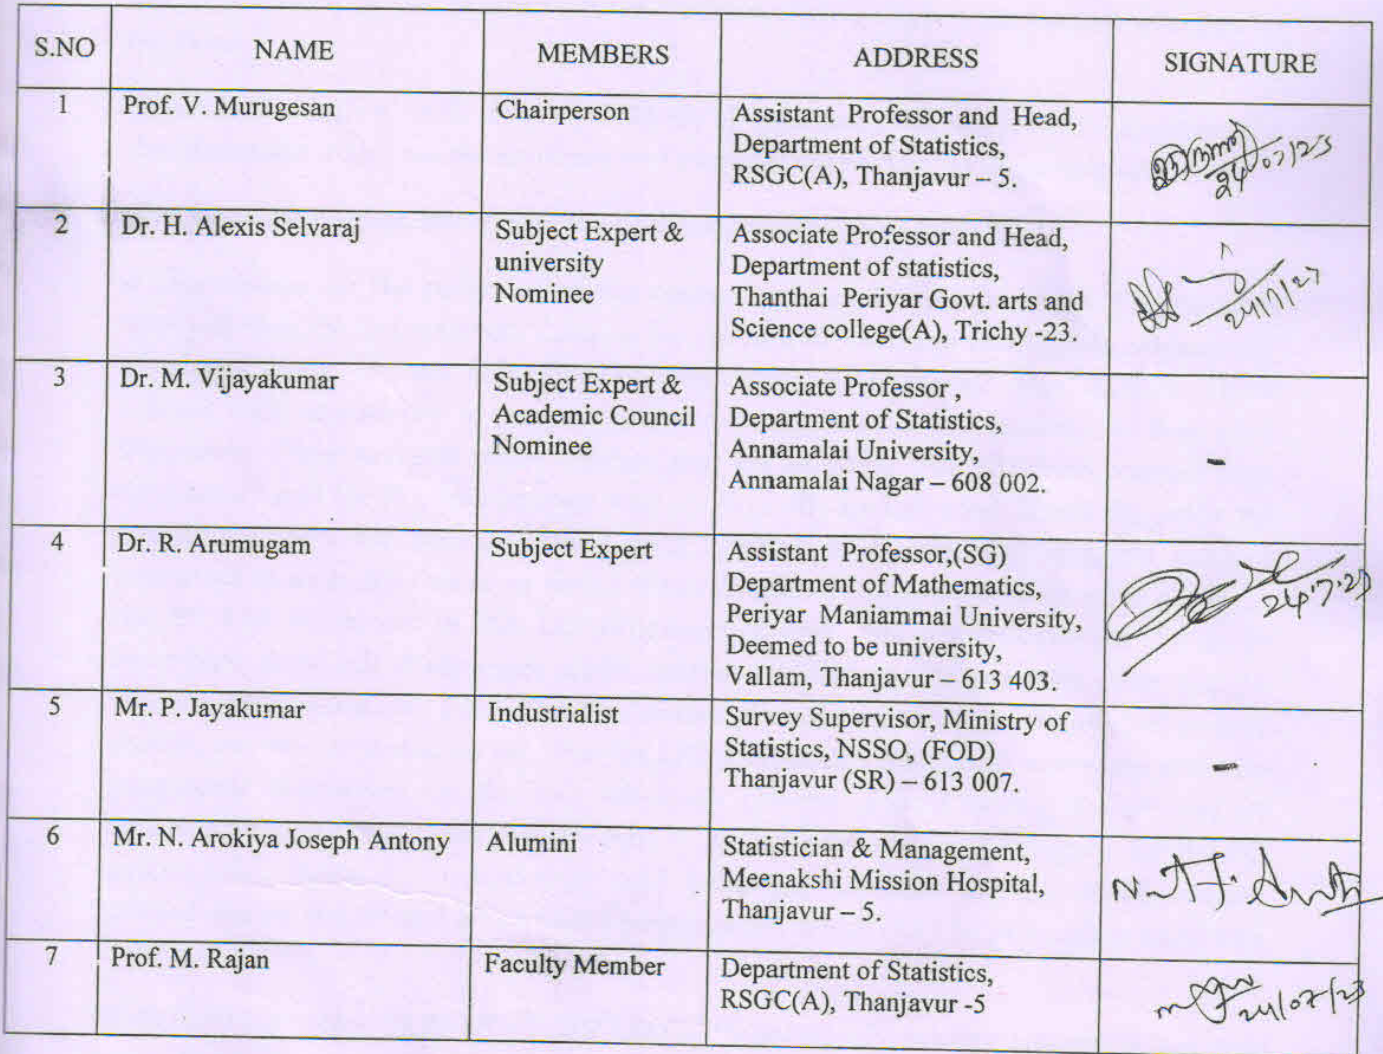 S.NO NAME MEMBERS ADDRESS SIGNATURE
1 Prof. V. Murugesan Chairperson Assistant Professor and Head,
Department of Statistics,
RSGC(A), Thanjavur – 5.
24/07/23
2 Dr. H. Alexis Selvaraj Subject Expert & Associate Professor and Head,
university Department of statistics,
Nominee Thanthai Periyar Govt. arts and
Science college(A), Trichy -23.
24/7/23
3 Dr. M. Vijayakumar Subject Expert & Associate Professor ,
Academic Council Department of Statistics,
Nominee Annamalai University, -
Annamalai Nagar – 608 002.
4 Dr. R. Arumugam Subject Expert Assistant Professor,(SG)
Department of Mathematics,
Periyar Maniammai University, 24.7.23
Deemed to be university,
Vallam, Thanjavur – 613 403.
5 Mr. P. Jayakumar Industrialist Survey Supervisor, Ministry of
Statistics, NSSO, (FOD)
Thanjavur (SR) – 613 007. -
6 Mr. N. Arokiya Joseph Antony Alumini Statistician & Management,
Meenakshi Mission Hospital,
Thanjavur – 5.
7 Prof. M. Rajan Faculty Member Department of Statistics,
RSGC(A), Thanjavur -5
24/07/23